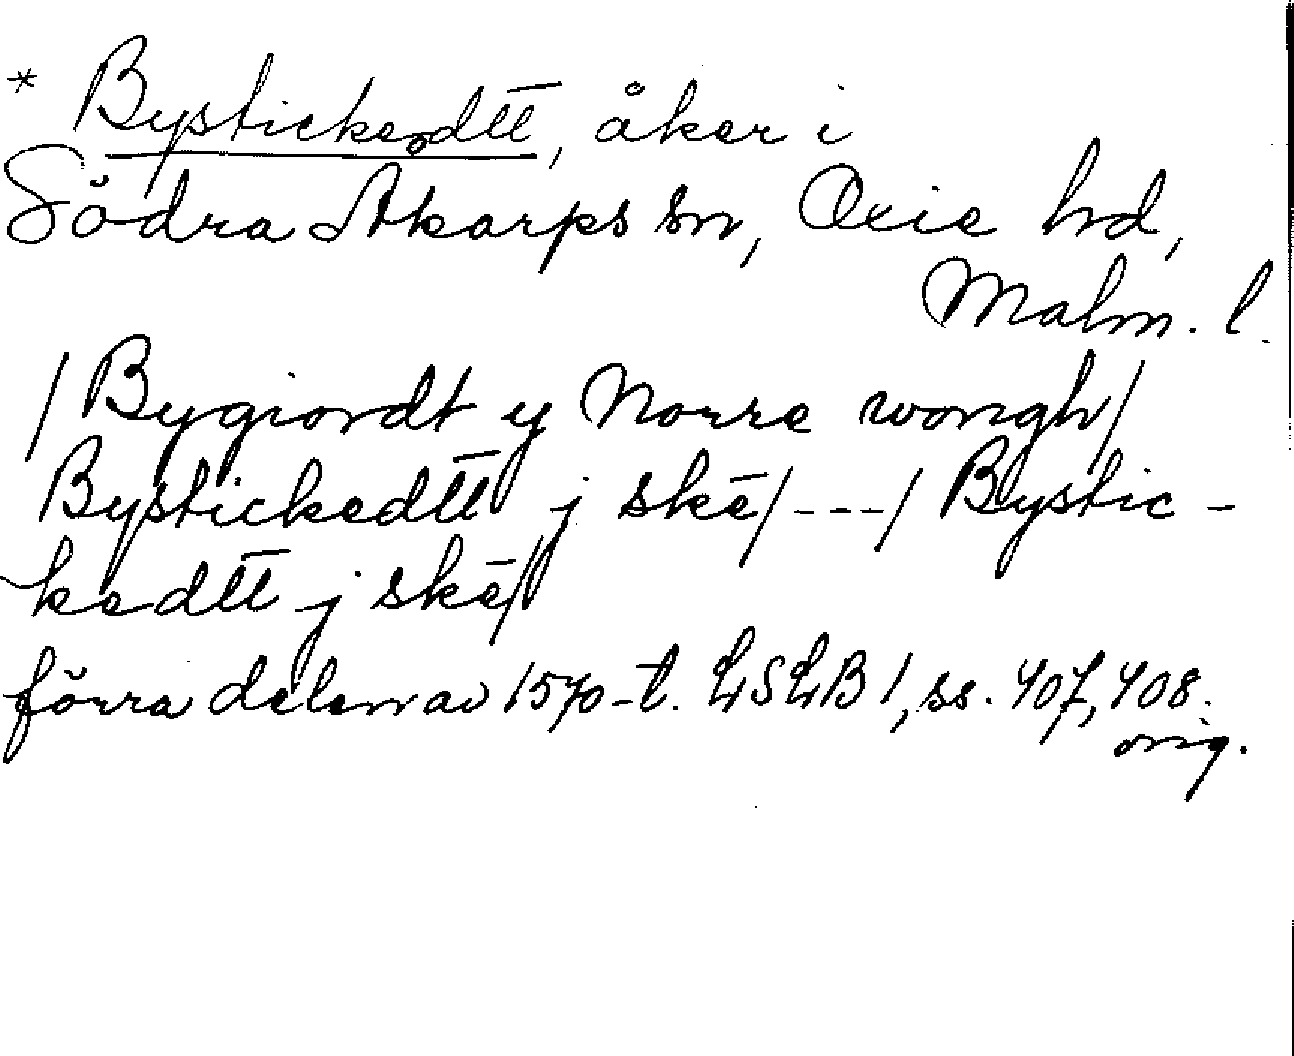 * Bystickedtt̄, åker i
Södra Åkarps sn, Oxie hd,
Malm. l.
/Bygiordt y Norre wongh/
Bystickedtt̄ j skē/---/Bystic-
kedtt̄ j skē/
förra delen av 1570-t. LSLB 1, ss. 407, 408.
orig.